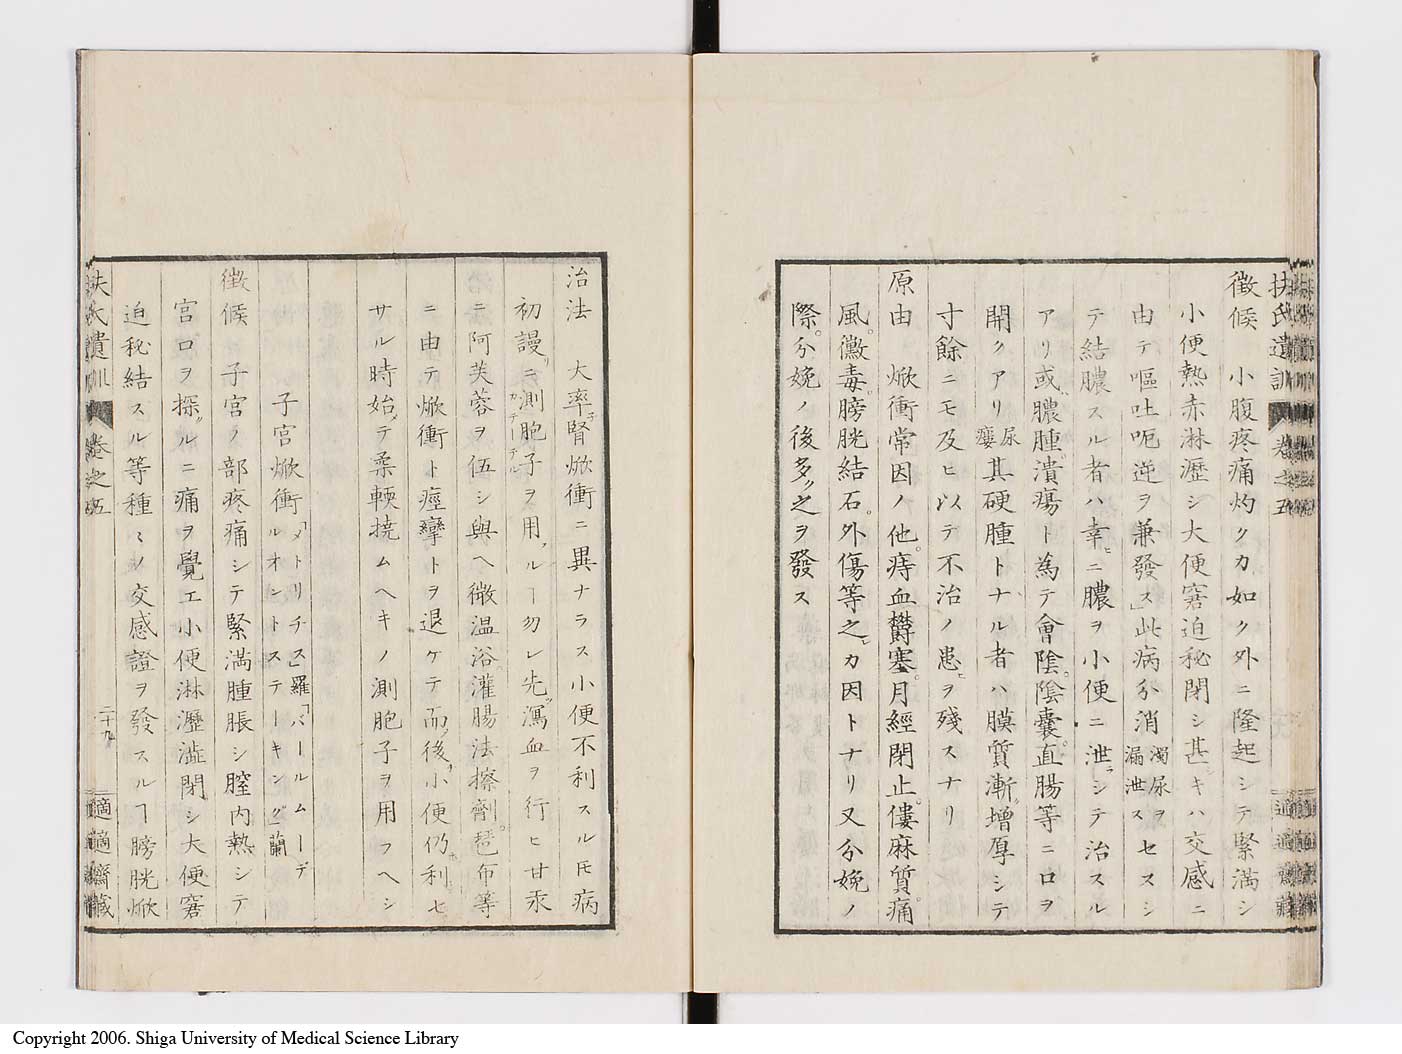 扶氏遺訓 卷之五 適適齋藏
徴候 小腹疼痛灼クカ如ク外ニ隆起シテ緊満シ
小便熱赤淋瀝シ大便窘迫秘閉シ甚シキハ交感ニ
由テ嘔吐呃逆ヲ兼發ス」此病分消濁尿ヲ漏泄スセスシ
テ結膿スル者ハ幸ヒニ膿ヲ小便ニ泄ラシテ治スル
アリ或ハ膿腫潰瘍ト為テ會陰。陰囊。直腸等ニ口ヲ
開クアリ尿瘻其硬腫トナル者ハ膜質漸ク増厚シテ
寸餘ニモ及ヒ以テ不治ノ患ヒヲ殘スナリ
原由 焮衝常因ノ他。痔血鬱塞。月經閉止。僂麻質痛
風。黴毒。膀胱結石。外傷等之レカ因トナリ又分娩ノ
際。分娩ノ後多ク之ヲ發ス
治法 大率子腎焮衝ニ異ナラス小便不利スルモ病
初謾リニ測胞子カテーテルヲ用フルヿ勿レ先ツ瀉血ヲ行ヒ甘汞
ニ阿芙蓉ヲ伍シ與ヘ微温浴。灌腸法擦劑。琶布等
ニ由テ焮衝ト痙攣トヲ退ケテ而後チ小便仍ホ利セ
サル時始メテ柔軟撓ムヘキノ測胞子ヲ用フヘシ
子宮焮衝「メトリチス」羅「バールムーデルオントステーキング」蘭
徴候 子宮ノ部疼痛シテ緊満腫脹シ膣内熱シテ
宮口ヲ探クルニ痛ヲ覺エ小便淋瀝澁閉シ大便窘
迫秘結スル等種々ノ交感證ヲ發スルヿ膀胱焮
扶氏遺訓 卷之五 二十九 適適齋藏
Copyright 2006. Shiga University of Medical Science Library